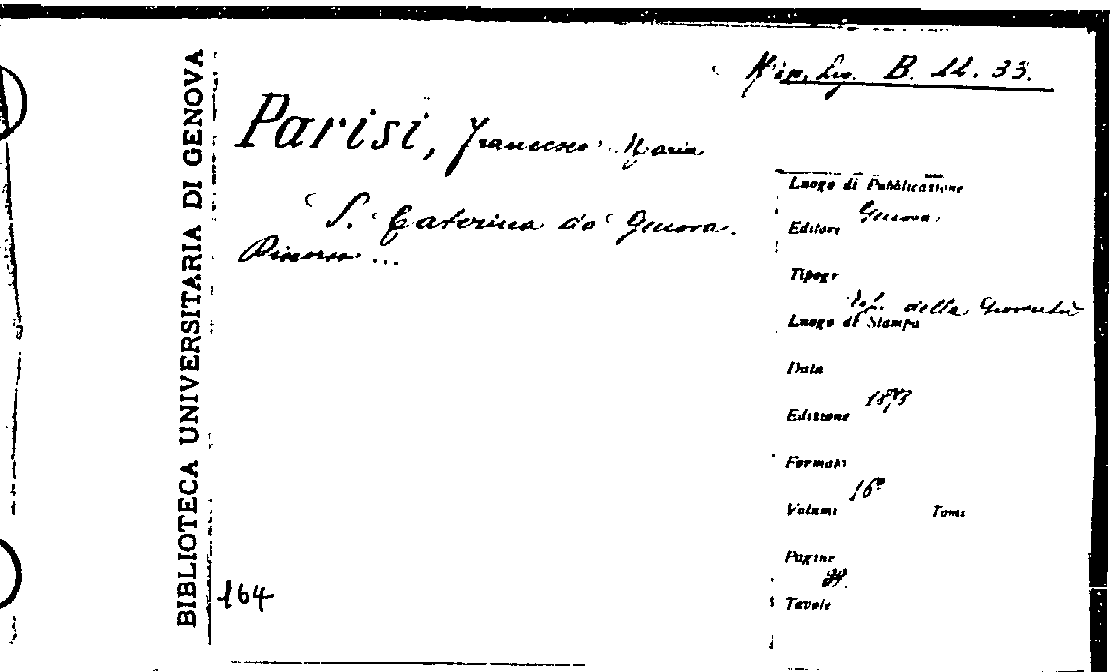 BIBLIOTECA UNIVERSITARIA DI GENOVA
B. 11. 33.
Parisi, Francesco Maria
S. Caterina da Genova.
Discorso ...
Luogo di Pubblicazione
Genova
Editore
Tipogr
Tip. della Gioventù
Luogo di Stampa
Data
1873
Edizione
Formato
16º
Volumi Tomi
Pagine
Tavole
164